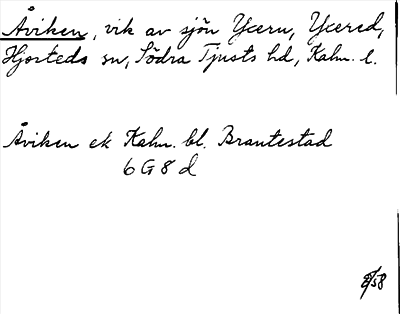 Åviken, vik av sjön Yxern, Yxered,
Hjorteds sn, Södra Tjusts hd, Kalm. l.
Åviken ek Kalm. bl. Brantestad
6 G 8 d